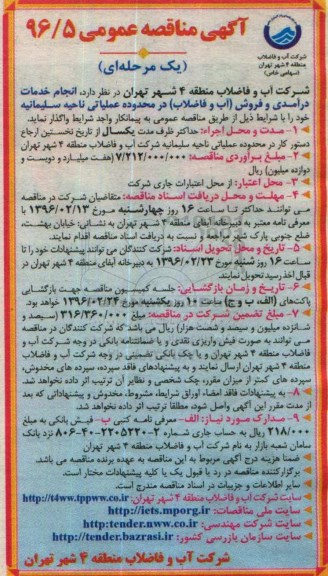 آگهی مناقصه عمومی ۹۶/۵
(یک مرحله‌ای)
شرکت آب و فاضلاب
منطقه ۴ شهر تهران
(سهامی خاص)
شرکت آب و فاضلاب منطقه ۴ شهر تهران در نظر دارد، انجام خدمات
درآمدی و فروش (آب و فاضلاب) در محدوده عملیاتی ناحیه سلیمانیه
خود را با شرایط ذیل از طریق مناقصه عمومی به پیمانکار واجد شرایط واگذار نماید.
۱- مدت و محل اجراء: حداکثر ظرف مدت یکسال از تاریخ نخستین ارجاع
دستور کار در محدوده عملیاتی ناحیه سلیمانیه شرکت آب و فاضلاب منطقه ۴ تهران
۲- مبلغ برآوردی مناقصه: ۷/۲۱۲/۰۰۰/۰۰۰ (هفت میلیارد و دویست و
دوازده میلیون) ریال
۳- محل اعتبار: از محل اعتبارات جاری شرکت
۴- مهلت و محل دریافت اسناد مناقصه: متقاضیان شرکت در مناقصه
می توانند حداکثر تا ساعت ۱۶ روز چهارشنبه مورخ ۱۳۹۶/۰۲/۱۳ با
معرفی نامه معتبر به دبیرخانه آبفای منطقه ۴ شهر تهران به نشانی: خیابان بهشت،
ضلع جنوبی پارک شهر مراجعه و نسبت به دریافت اسناد مناقصه اقدام نمایند.
۵- تاریخ و محل تحویل اسناد: شرکت کنندگان می توانند پیشنهادات خود را تا
ساعت ۱۶ روز شنبه مورخ ۱۳۹۶/۰۲/۲۳ به دبیرخانه آبفای منطقه ۴ شهر تهران در
قبال اخذ رسید تحویل نمایند.
۶- تاریخ و زمان بازگشایی: جلسه کمیسیون مناقصه جهت بازگشایی
پاکت‌های (الف، ب و ج) ساعت ۱۰ روز یکشنبه مورخ ۱۳۹۶/۰۲/۲۴ خواهد بود.
۷- مبلغ تضمین شرکت در مناقصه: مبلغ ۳۱۶/۳۶۰/۰۰۰ (سیصد و
شانزده میلیون و سیصد و شصت هزار) ریال می باشد که شرکت کنندگان در مناقصه
می توانند به صورت فیش واریزی نقدی و یا ضمانتنامه بانکی در وجه شرکت آب و
فاضلاب منطقه ۴ شهر تهران و یا چک بانکی تضمینی در وجه شرکت آب و فاضلاب
منطقه ۴ شهر تهران ارسال نمایند و به پیشنهادهای فاقد سپرده، سپرده های مخدوش،
سپرده های کمتر از میزان مقرر، چک شخصی و نظایر آن ترتیب اثر داده نخواهد شد.
۸- به پیشنهادات فاقد امضاء اوراق شرایط، مشروط، مخدوش و پیشنهاداتی که بعد
از مدت مقرر این آگهی واصل شود، مطلقاً ترتیب اثر داده نخواهد شد.
۹- مدارک مورد نیاز: الف- معرفی نامه کتبی ب- فیش بانکی به مبلغ
۲۱۸/۰۰۰ ریال به حساب جاری شماره ۲-۲۲۰۵۲۲-۴۰-۸۰۶ نزد بانک
سامان شعبه بازار به نام شرکت آب و فاضلاب منطقه ۴ شهر تهران
- ضمناً هزینه درج آگهی مربوط به این مناقصه به عهده برنده مناقصه می باشد.
- برگزارکننده مناقصه در رد یا قبول یک یا کلیه پیشنهادات مختار است.
- سایر اطلاعات و جزییات در اسناد مناقصه مندرج است.
سایت شرکت آب و فاضلاب منطقه ۴ شهر تهران: http://t4ww.tppww.co.ir
سایت ملی مناقصات: http://iets.mporg.ir
سایت شرکت مهندسی: http:tender.nww.co.ir
سایت سازمان بازرسی کشور: http://tender.bazrasi.ir
شرکت آب و فاضلاب منطقه ۴ شهر تهران